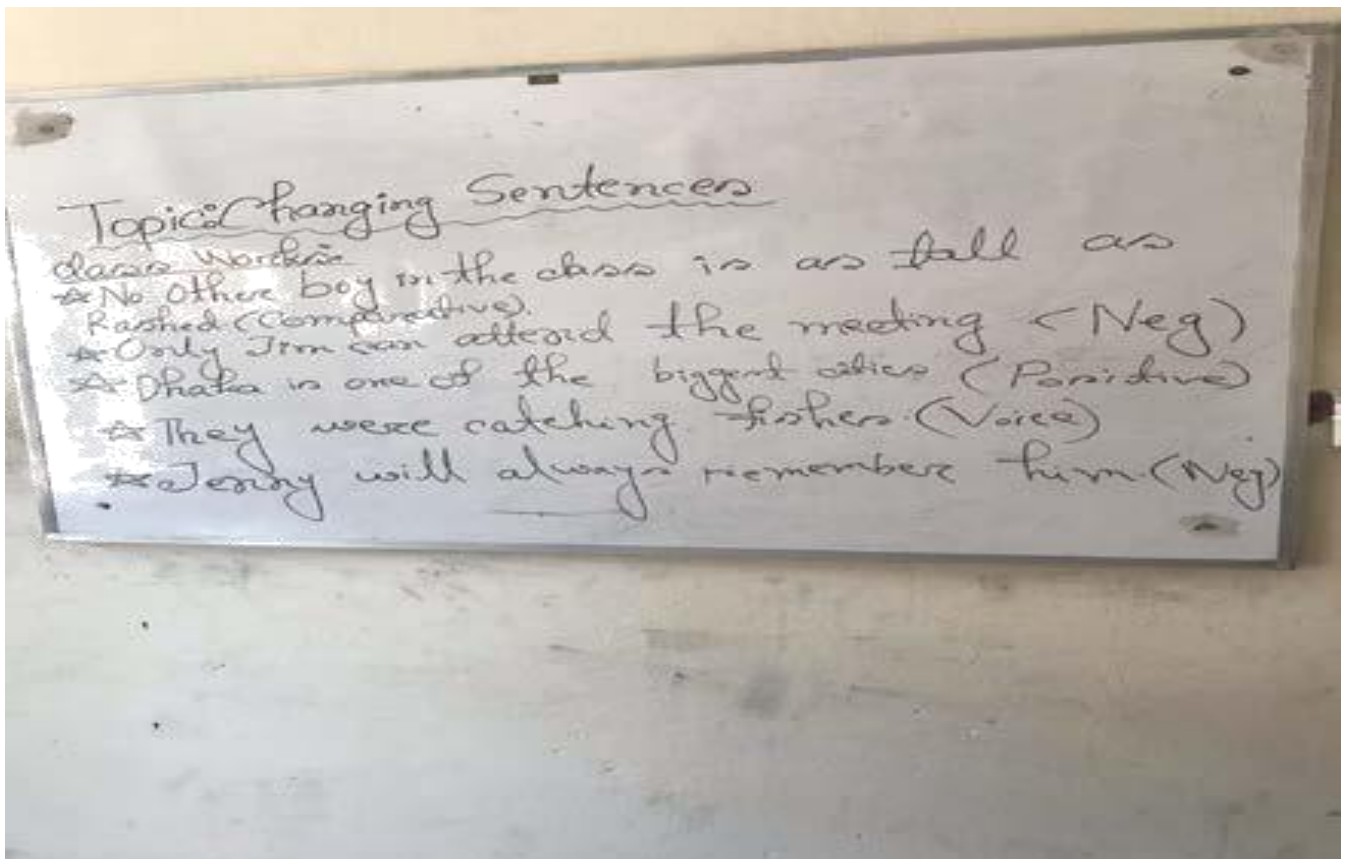 Topic: Changing Sentences
Class Work:-
☆ No other boy in the class is as tall as
Rashed (Comparative).
☆ Only Jim can attend the meeting (Neg)
☆ Dhaka is one of the biggest cities (Positive)
☆ They were catching fishes. (Voice)
☆ Jenny will always remember him. (Neg)